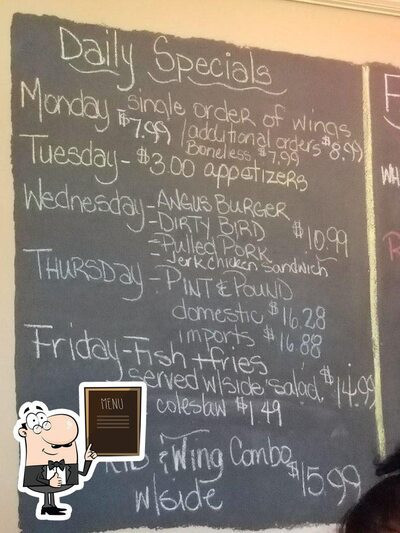 Daily Specials
Monday single order of wings
$7.99 / additional orders $8.99
Boneless $7.99
Tuesday - $3.00 appetizers
Wednesday - ANGUS BURGER
- DIRTY BIRD $10.99
- Pulled PORK
- Jerk chicken Sandwich
THURSDAY - PINT & POUND
domestic $16.28
imports $16.88
Friday - Fish + fries
served w/side salad $14.99
coleslaw $1.49
& Wing Combo $15.99
w/side
MENU